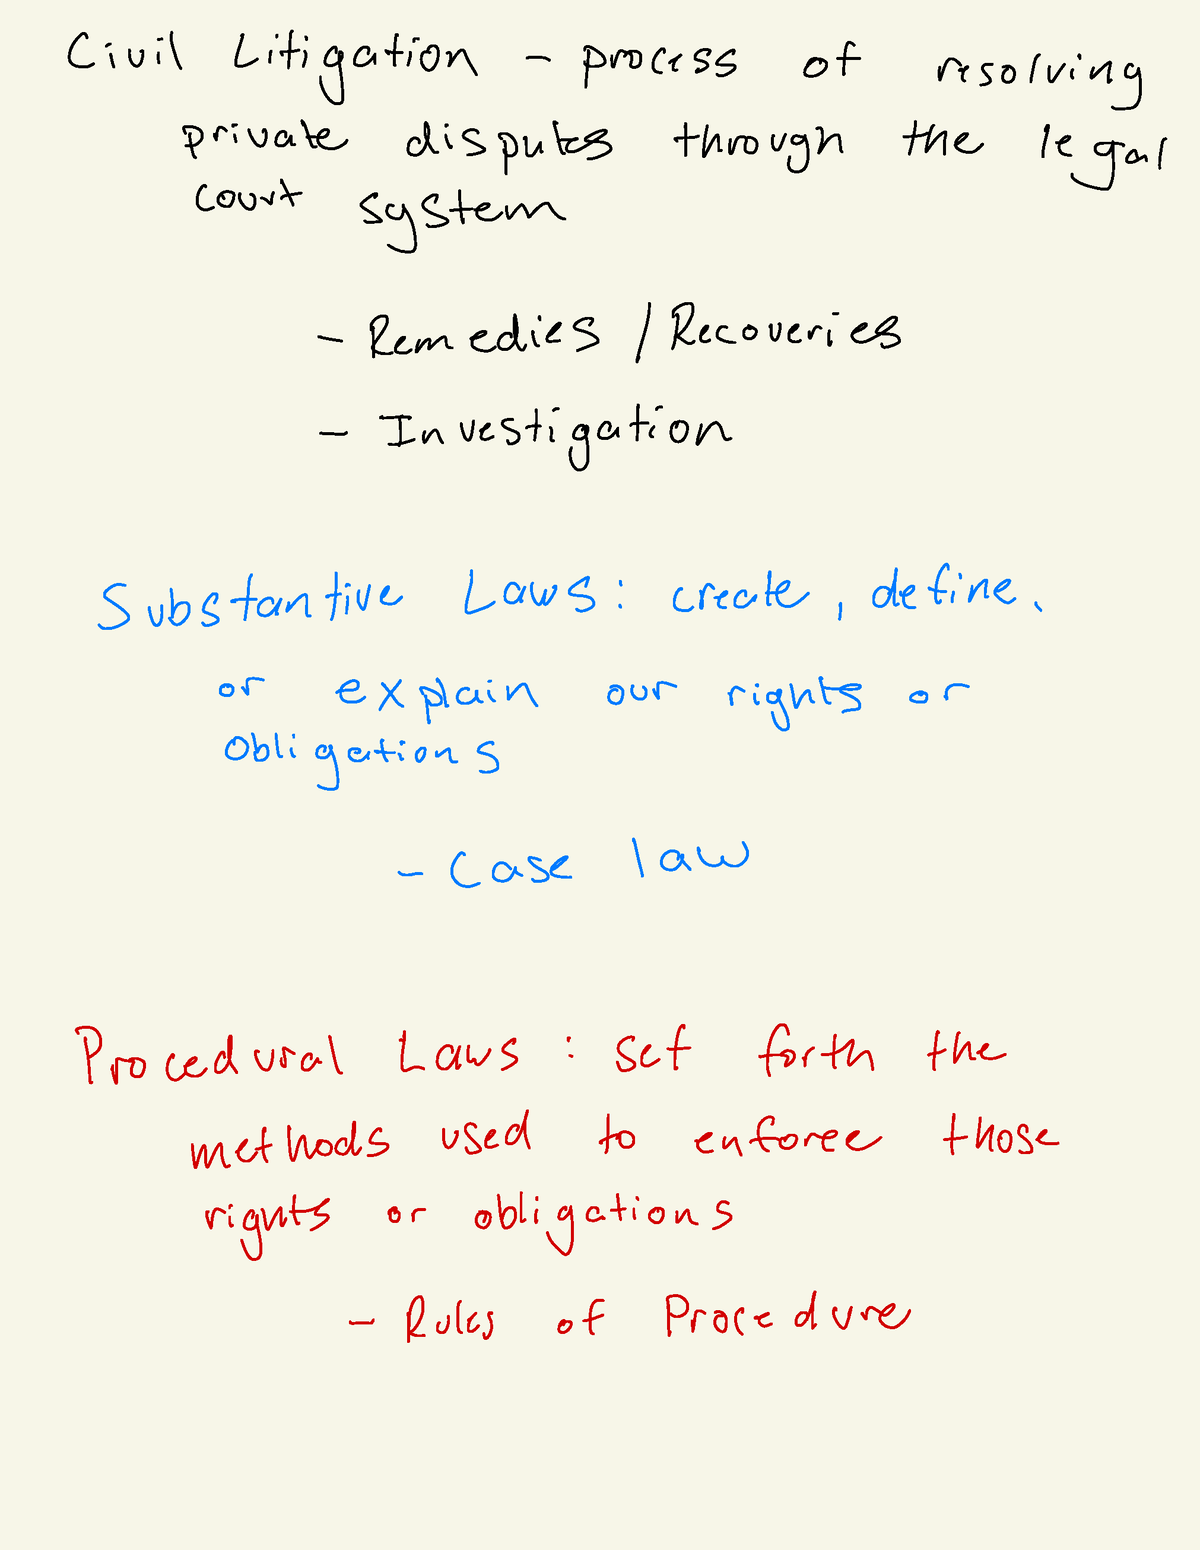 Civil Litigation - process of resolving
private disputes through the legal
court system
- Remedies / Recoveries
- Investigation
Substantive Laws: create, define,
or explain our rights or
obligations
- Case law
Procedural Laws: set forth the
methods used to enforce those
rights or obligations
- Rules of Procedure